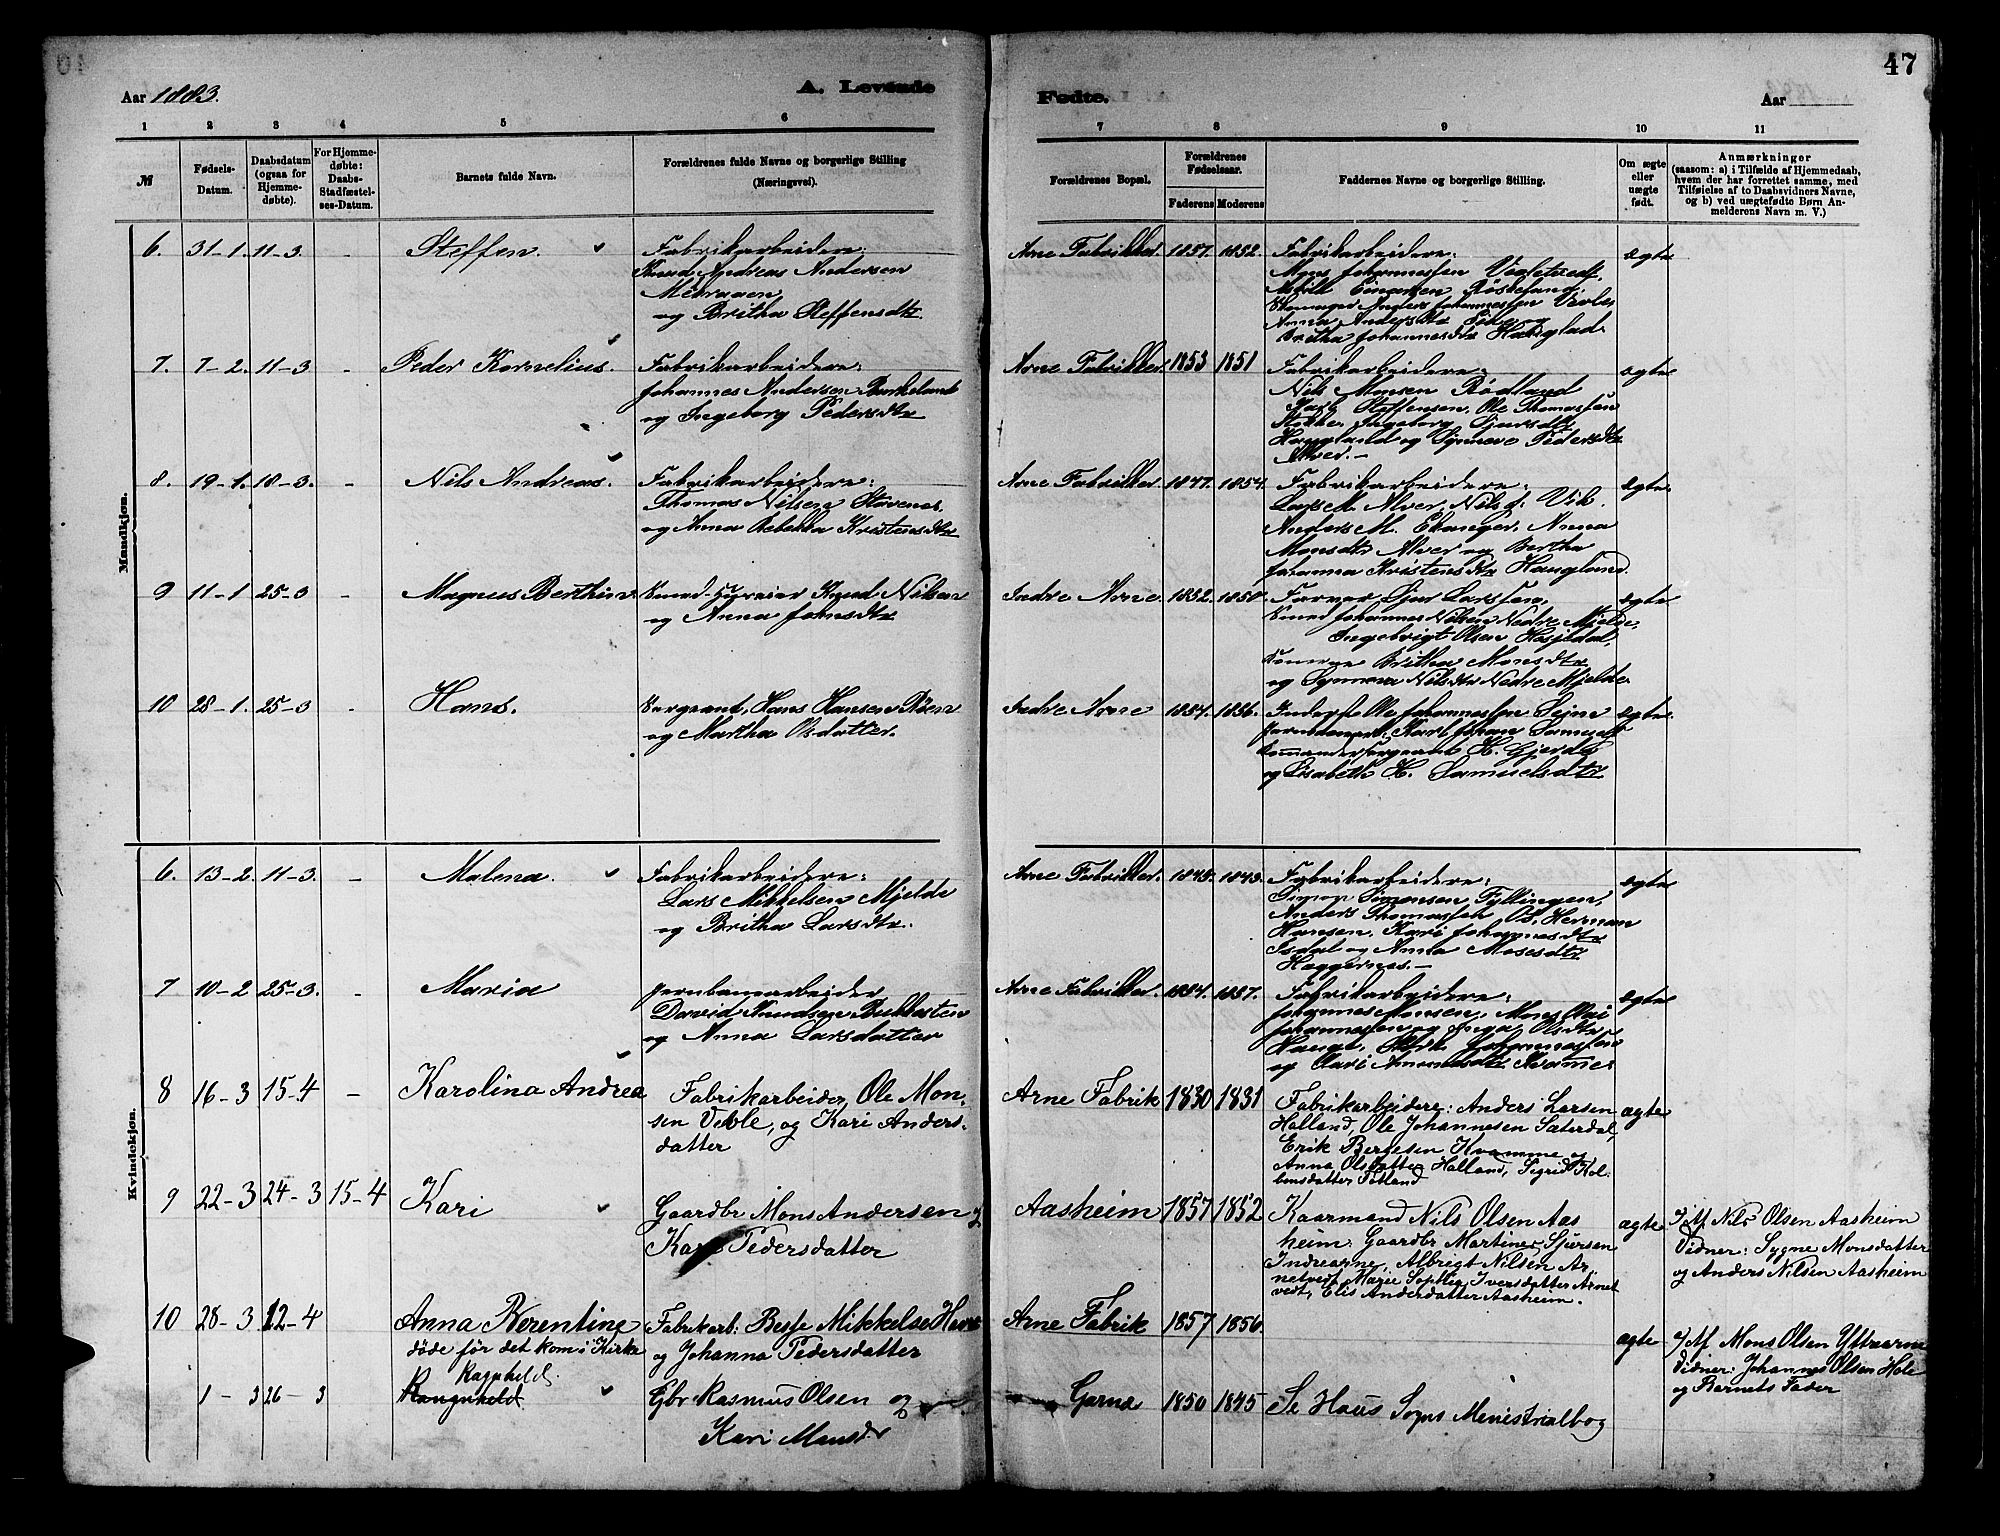 47
Aar 1883.
A. Levende
Fødte.
Aar
1 2 3 4 5 6 7 8 9 10 11
№
Fødsels-
Datum.
Daabsdatum
(ogsaa for
Hjemme-
døbte).
For Hjemme-
døbte:
Daabs-
Stadfæstel-
ses-Datum.
Barnets fulde Navn.
Forældrenes fulde Navne og borgerlige Stilling
(Næringsvei).
Forældrenes Bopæl.
Forældrenes
Fødselsaar.
Faderens Moderens
Faddernes Navne og borgerlige Stilling.
Om ægte
eller
uægte
født.
Anmærkninger
(saasom: a) i Tilfælde af Hjemmedaab,
hvem der har forrettet samme, med
Tilføielse af to Daabsvidners Navne,
og b) ved uægtefødte Børn An-
melderens Navn m. V.)
Mandkjøn.
6. 31-1. 11-3. - Steffen.
Fabrikarbeidere:
Knud Andreas Andersen
og Britha Steffensdtr.
Arne Fabrikker 1857. 1852.
Fabrikarbeidere:
Mons Johannessen
Einarsen
Anders Johannessen
Anna Andersdtr
Britha Johannesdtr Haugland.
ægte
7. 7-2. 11-3 - Peder Kornelius.
Fabrikarbeidere:
Johannes Andersen Birkeland
og Ingeborg Pedersdtr
Arne Fabrikker. 1853 1851
Fabrikarbeidere:
Nils Monsen Rødland
Steffensen, Ole Thomassen
Ingeborg Sjursdtr
Haugland og Synneve Pedersdtr
Alver.-
ægte
8. 19-1. 18-3. - Nils Andreas.
Fabrikarbeidere:
Thomas Nilsen Stavenes
og Anna Rebekka Kristensdtr
Arne Fabrikker 1847. 1854.
Fabrikarbeidere:
Lars M. Alver, Nils J. Vik.
Anders M. Ekanger, Anna
Monsdtr Alver og Bertha
Johanna Kristensdtr Haugland.
ægte
9 11-1 25-3 - Magnus Berthin
Smed- Knud Nilsen
og Anna Johnsdtr
Indre Arne. 1852. 1850.
Farver Sjur Larssen,
Smed Johannes Nilsen Nedre Mjelde,
Ingebrigt Olsen
Konerne Britha Monsdtr
og Synneva Nilsdtr Nedre Mjelde.
ægte
10 28-1. 25-3 - Hans.
Sergeant Hans Hansen Bøen
og Martha Olsdatter.
Indre Arne 1854. 1856.
Ole Johannessen
Karl Johan
Kommandersergeant H. Gjerde
og Lisabeth H. Samuelsdtr
ægte
Kvindekjøn.
6. 13-2. 11-3. - Malena.
Fabrikarbeidere:
Lars Mikkelsen Mjelde
og Britha Larsdtr.
Arne Fabrikker. 1845. 1843.
Fabrikarbeidere:
Simon Simonsen Fyllingen,
Anders Thomassen Os, Herman
Hansen, Kari Johannesdtr
Isdal og Anna Mosesdtr
Haggernes.-
ægte
7 10-2 25-3. - Maria
Jernbanearbeider
David Knudsen
og Anna Larsdatter
Arne Fabrikker. 1854. 1857.
Fabrikarbeidere:
Johannes Monsen, Mons Olai
Johannessen og Inga Olsdtr
Johannessen
ægte
8 16-3 15-4 - Karolina Andrea
Fabrikarbeider Ole Mon-
sen Veble, og Kari Anders-
datter
Arne Fabrik 1830 1831
Fabrikarbeidere: Anders Larsen
Holland, Ole Johannesen Sæterdal,
Erik Bergesen Kvamme og
Anna Olsdatter Holland, Sigrid Kol-
bensdatter Fotland
ægte
9 22-3 24-3 15-4 Kari
Gaardbr Mons Andersen og
Kari Pedersdatter
Aasheim 1857 1852
Kaarmand Nils Olsen Aas
heim. Gaardbr Martines Sjursen
Indrearne, Albregt Nilsen Ar
netvedt, Marie Sophie Iversdatter Arnet
vedt, Elis Andersdatter Aasheim.
ægte
Af Nils Olsen Aasheim
Vidner: Sygne Monsdatter
og Anders Nilsen Aasheim
10 28-3 12-4 Anna Berentine
døde før det kom i Kirke
Fabrikarb: Besse Mikkelse
og Johanna Pedersdatter
Arne Fabrik 1857 1856.
ægte
Af Mons Olsen Yttrearne
Vidner: Johannes Olsen Hole
og Barnets Fader
1-3 26-3 Ragnhild
Gbr Rasmus Olsen og
Kari Monsdr
Garnæ 1850 1845
Se Haus Sogns Menistrialbog